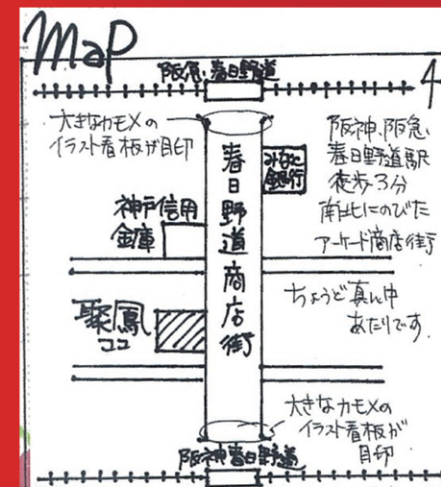 Map
阪急春日野道
大きなカモメの
イラスト看板が目印
春日野道商店街
みなと
銀行
阪神、阪急
春日野道駅
徒歩3分
南北にのびた
アーケード商店街
神戸信用
金庫
ちょうど真ん中
あたりです。
聚鳳
ココ
大きなカモメの
イラスト看板が
目印
阪神春日野道